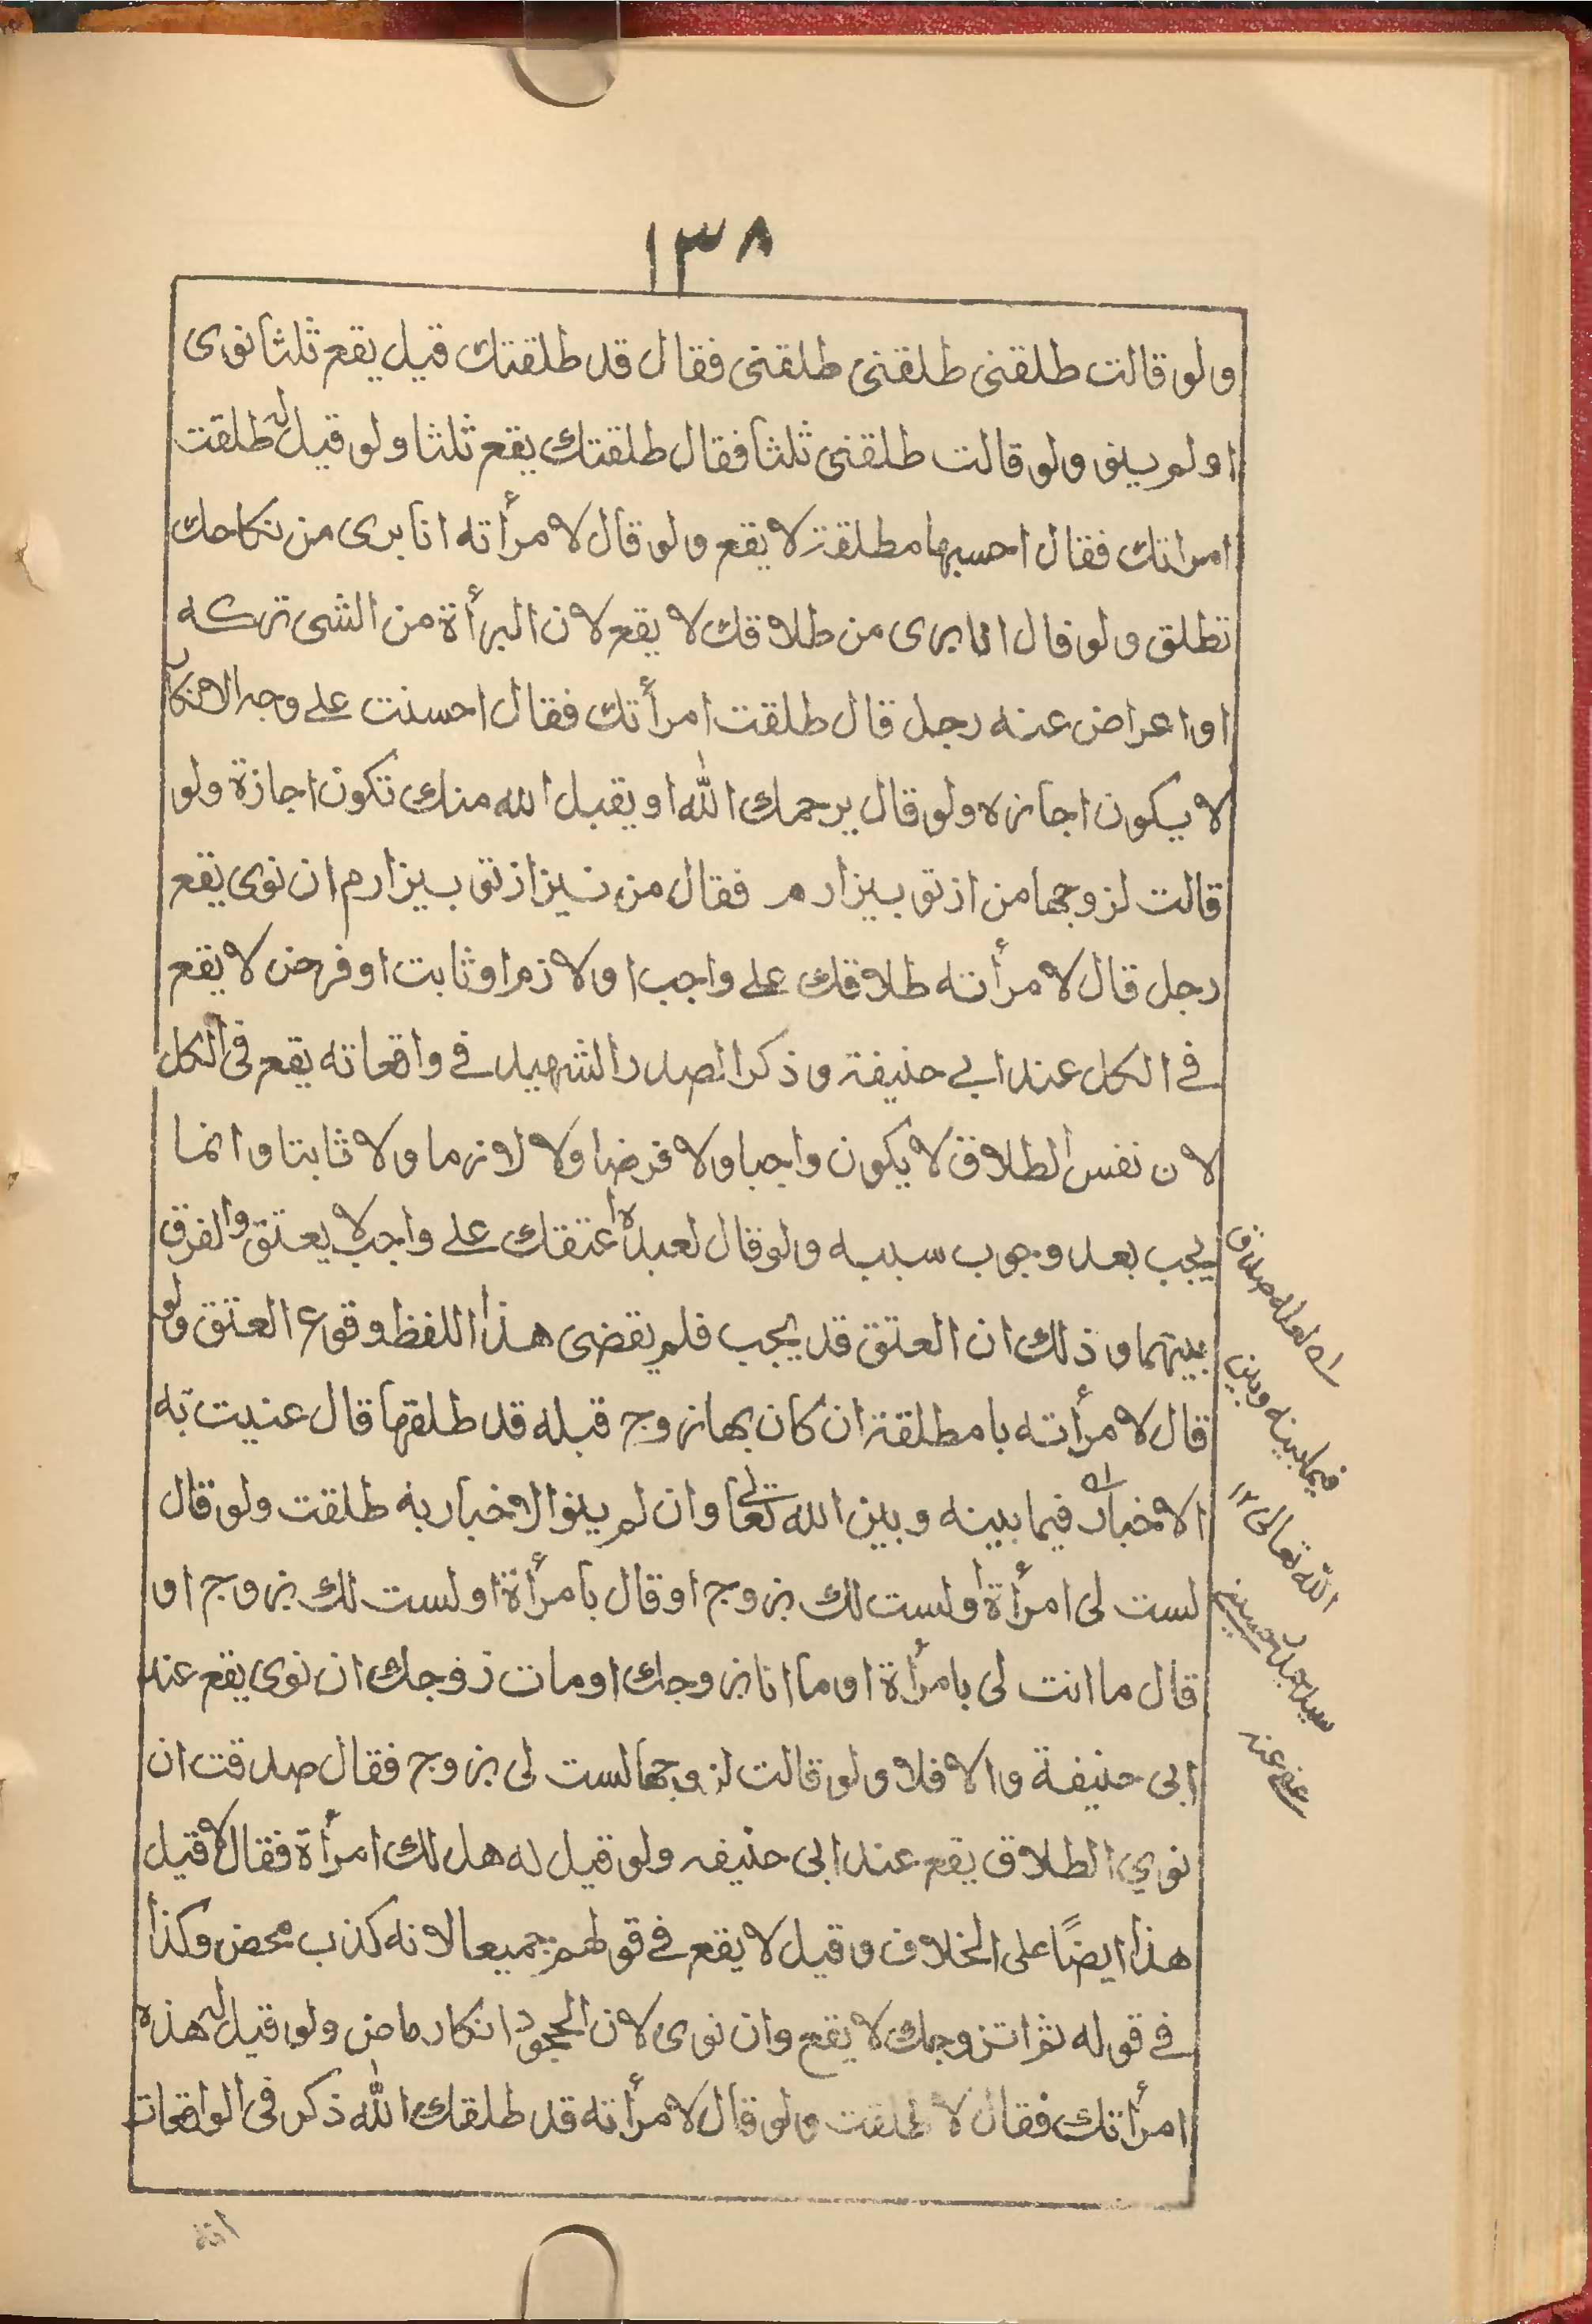 ١٣٨
ولو قالت طلقنى طلقنى طلقنى فقال قد طلقتك قيل يقع ثلثا نوى
او لم ينو ولو قالت طلقنى ثلثا فقال طلقتك يقع ثلثا ولو قيل له طلقت
امراتك فقال احسبها مطلقة لا يقع ولو قال لا مرأته انا برى من نكاحك
تطلق ولو قال انا برى من طلاقك لا يقع لان البرأة من الشى تركه
او اعراض عنه رجل قال طلقت امرأتك فقال احسنت على وجه الانكار
لا يكون اجازه ولو قال يرحمك الله او يقبل الله منك تكون اجازة ولو
قالت لزوجها من از تو بيزارم فقال من نيز از تو بيزارم ان نوى يقع
رجل قال لا مرأته طلاقك على واجب او لازم او ثابت او فرض لا يقع
فى الكل عند ابى حنيفة و ذكر الصدر الشهيد فى واقعاته يقع فى الكل
لان نفس الطلاق لا يكون واجبا ولا فرضا ولا لازما ولا ثابتا وانما
يجب بعد وجوب سببه ولو قال لعبده اعتقك على واجب لا يعتق والفرق
بينهما و ذلك ان العتق قد يجب فلم يقضى هذا اللفظ وقوع العتق ولو
قال لا مرأته با مطلقة ان كان بها زوج قبله قد طلقها قال عنيت به
الاخبار فيما بينه وبين الله تعالى وان لم ينو الاخبار به طلقت ولو قال
لست لى امرأة او لست لك بزوج او قال بامرأة او لست لك بزوج او
قال ما انت لى بامرأة او ما انا بزوجك او مات زوجك ان نوى يقع عند
ابى حنيفة والا فلا ولو قالت لزوجها لست لى بزوج فقال صدقت ان
نوي الطلاق يقع عند ابى حنيفه ولو قيل له هل لك امرأة فقال لا قيل
هذا ايضًا على الخلاف وقيل لا يقع فى قولهم جميعا لانه كذب محض وكذا
فى قوله لم اتزوجك لا يقع وان نوى لان الجحود انكار ماض ولو قيل له هذه
امرأتك فقال لا طلقت ولو قال لا مرأته قد طلقك الله ذكر فى الواقعات
اه لعله صدق
فيما بينه وبين
الله تعالى ١٢
عفى عنه